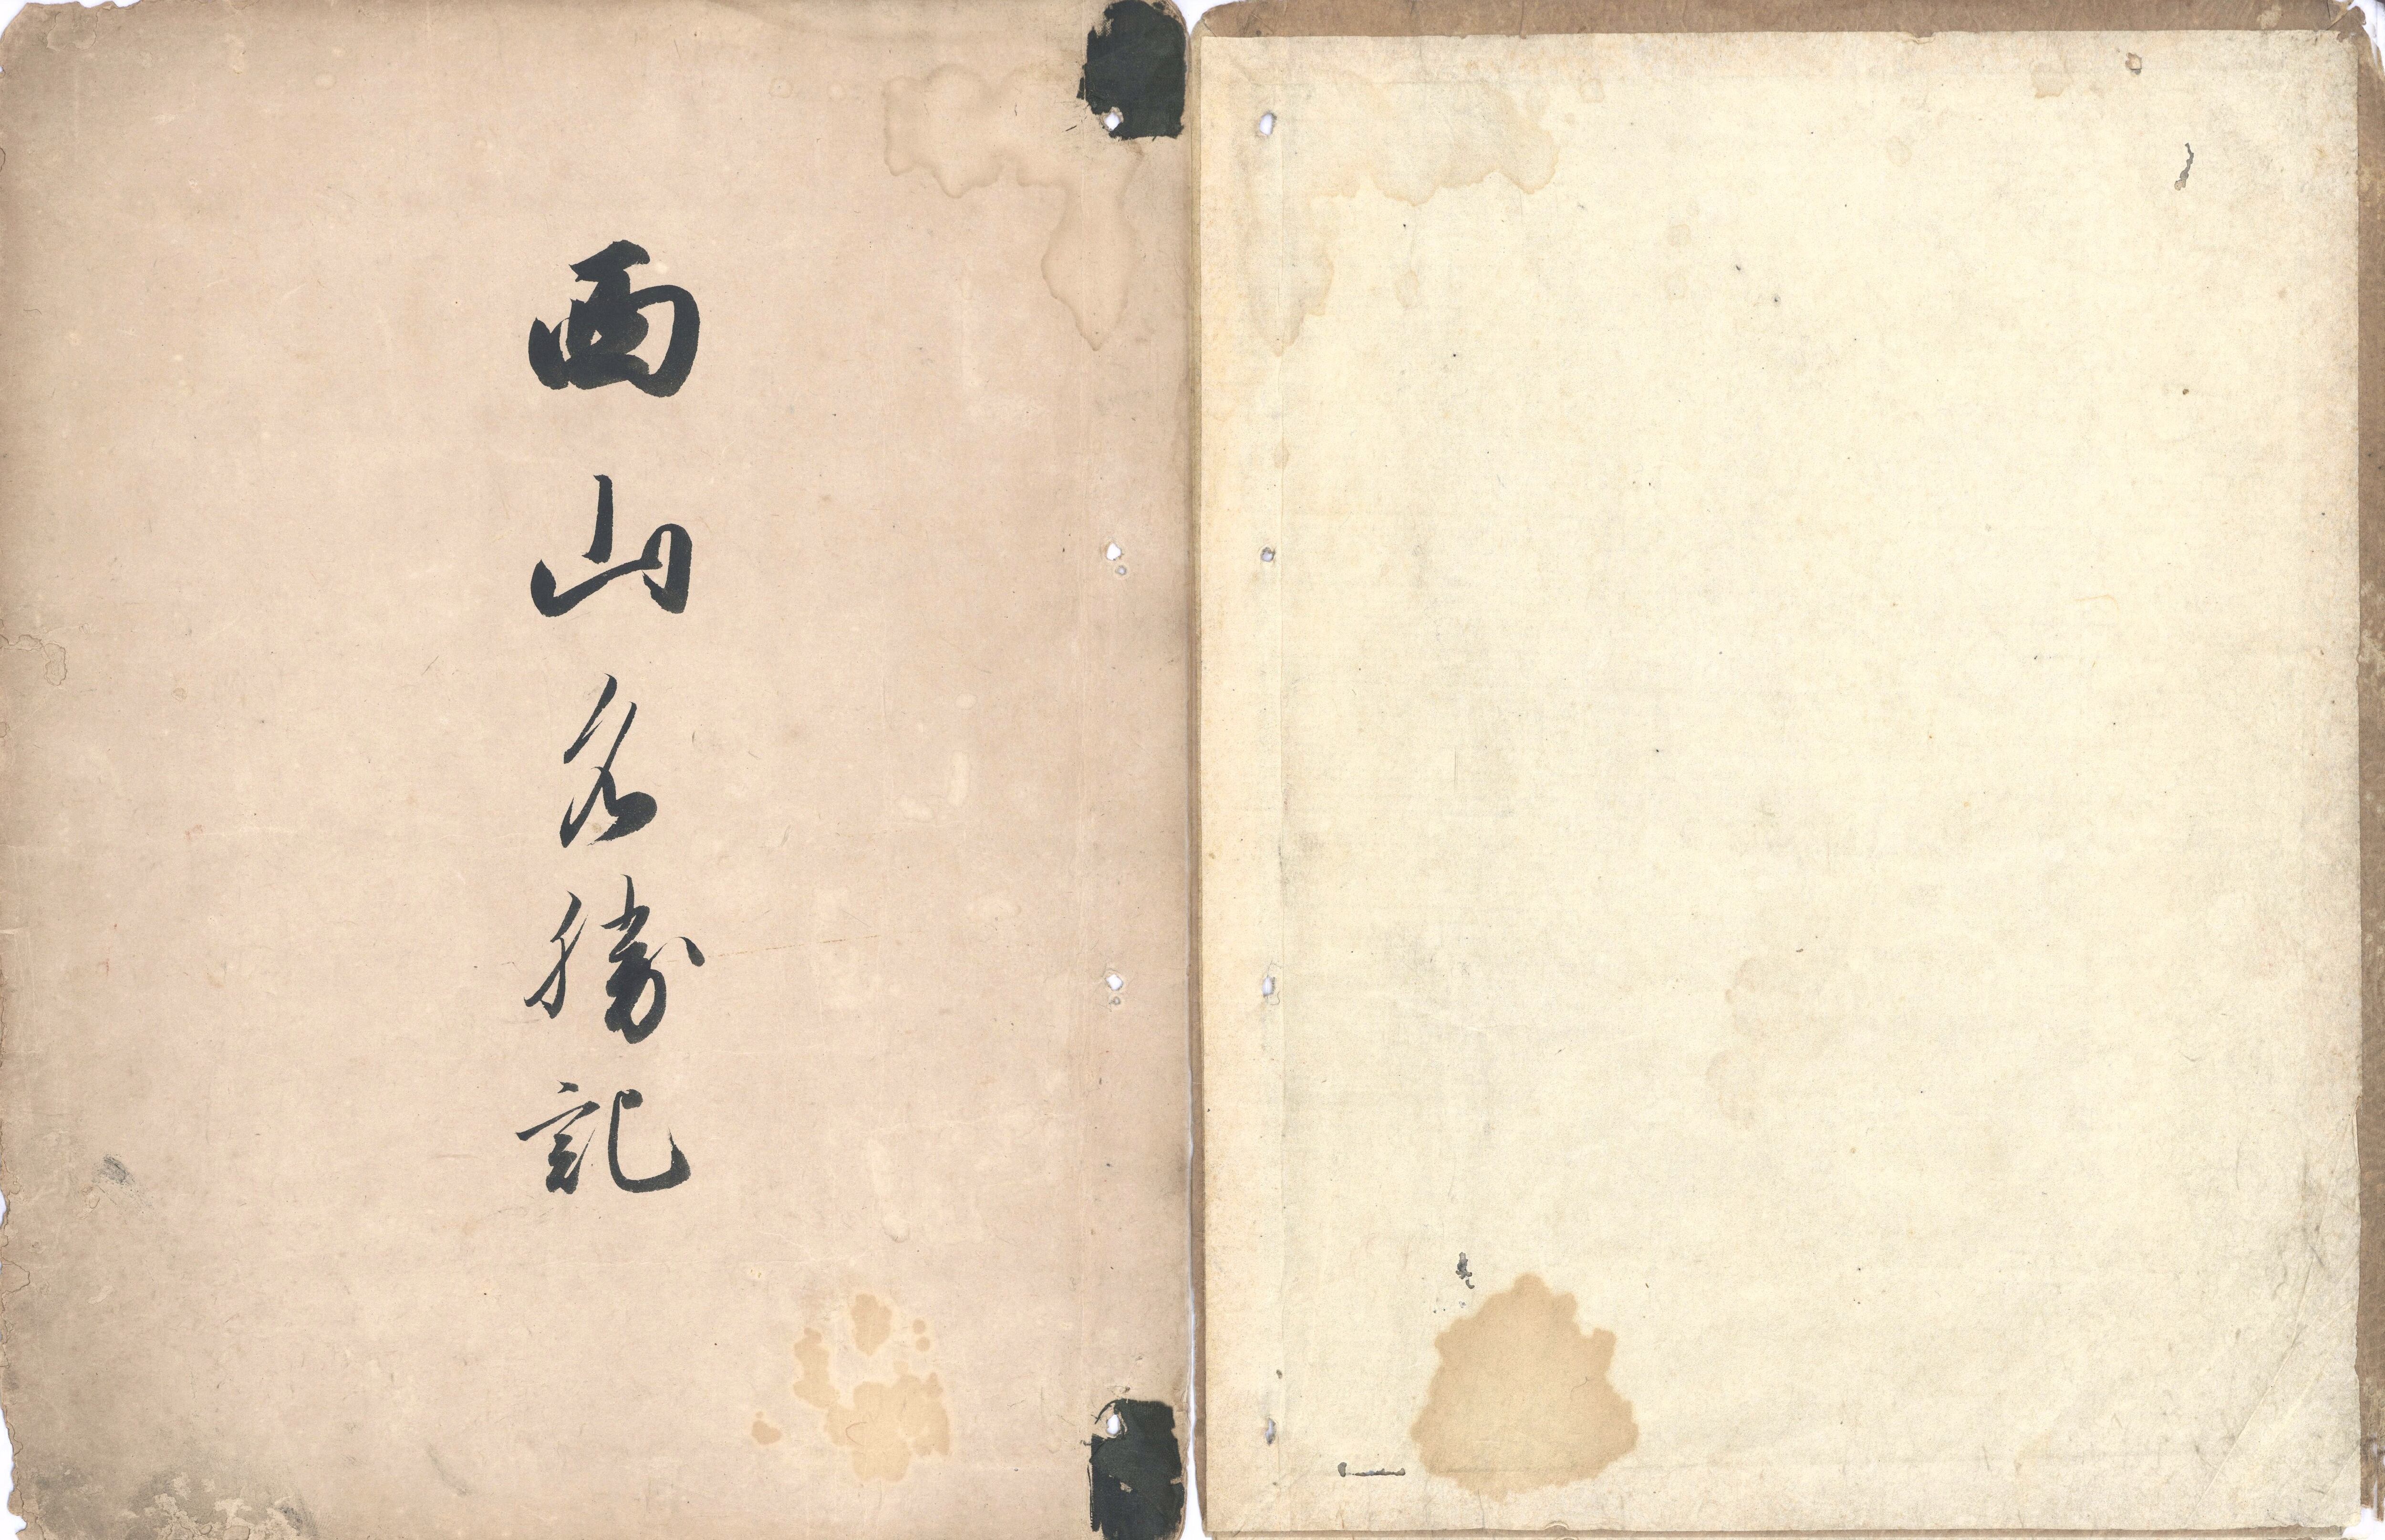 西山名勝記